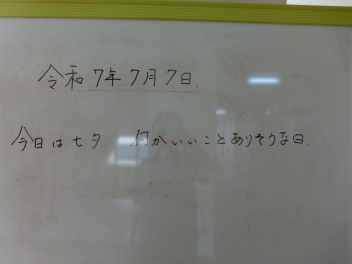 令和7年7月7日.
今日は七夕. 何かいいことありそうな日.